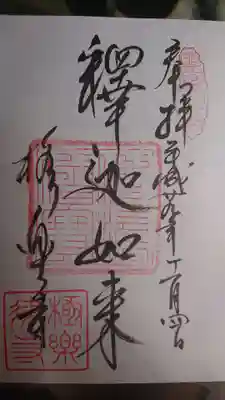 奉拝 平成廿九年十一月四日
釋迦如来
極楽寺
極樂